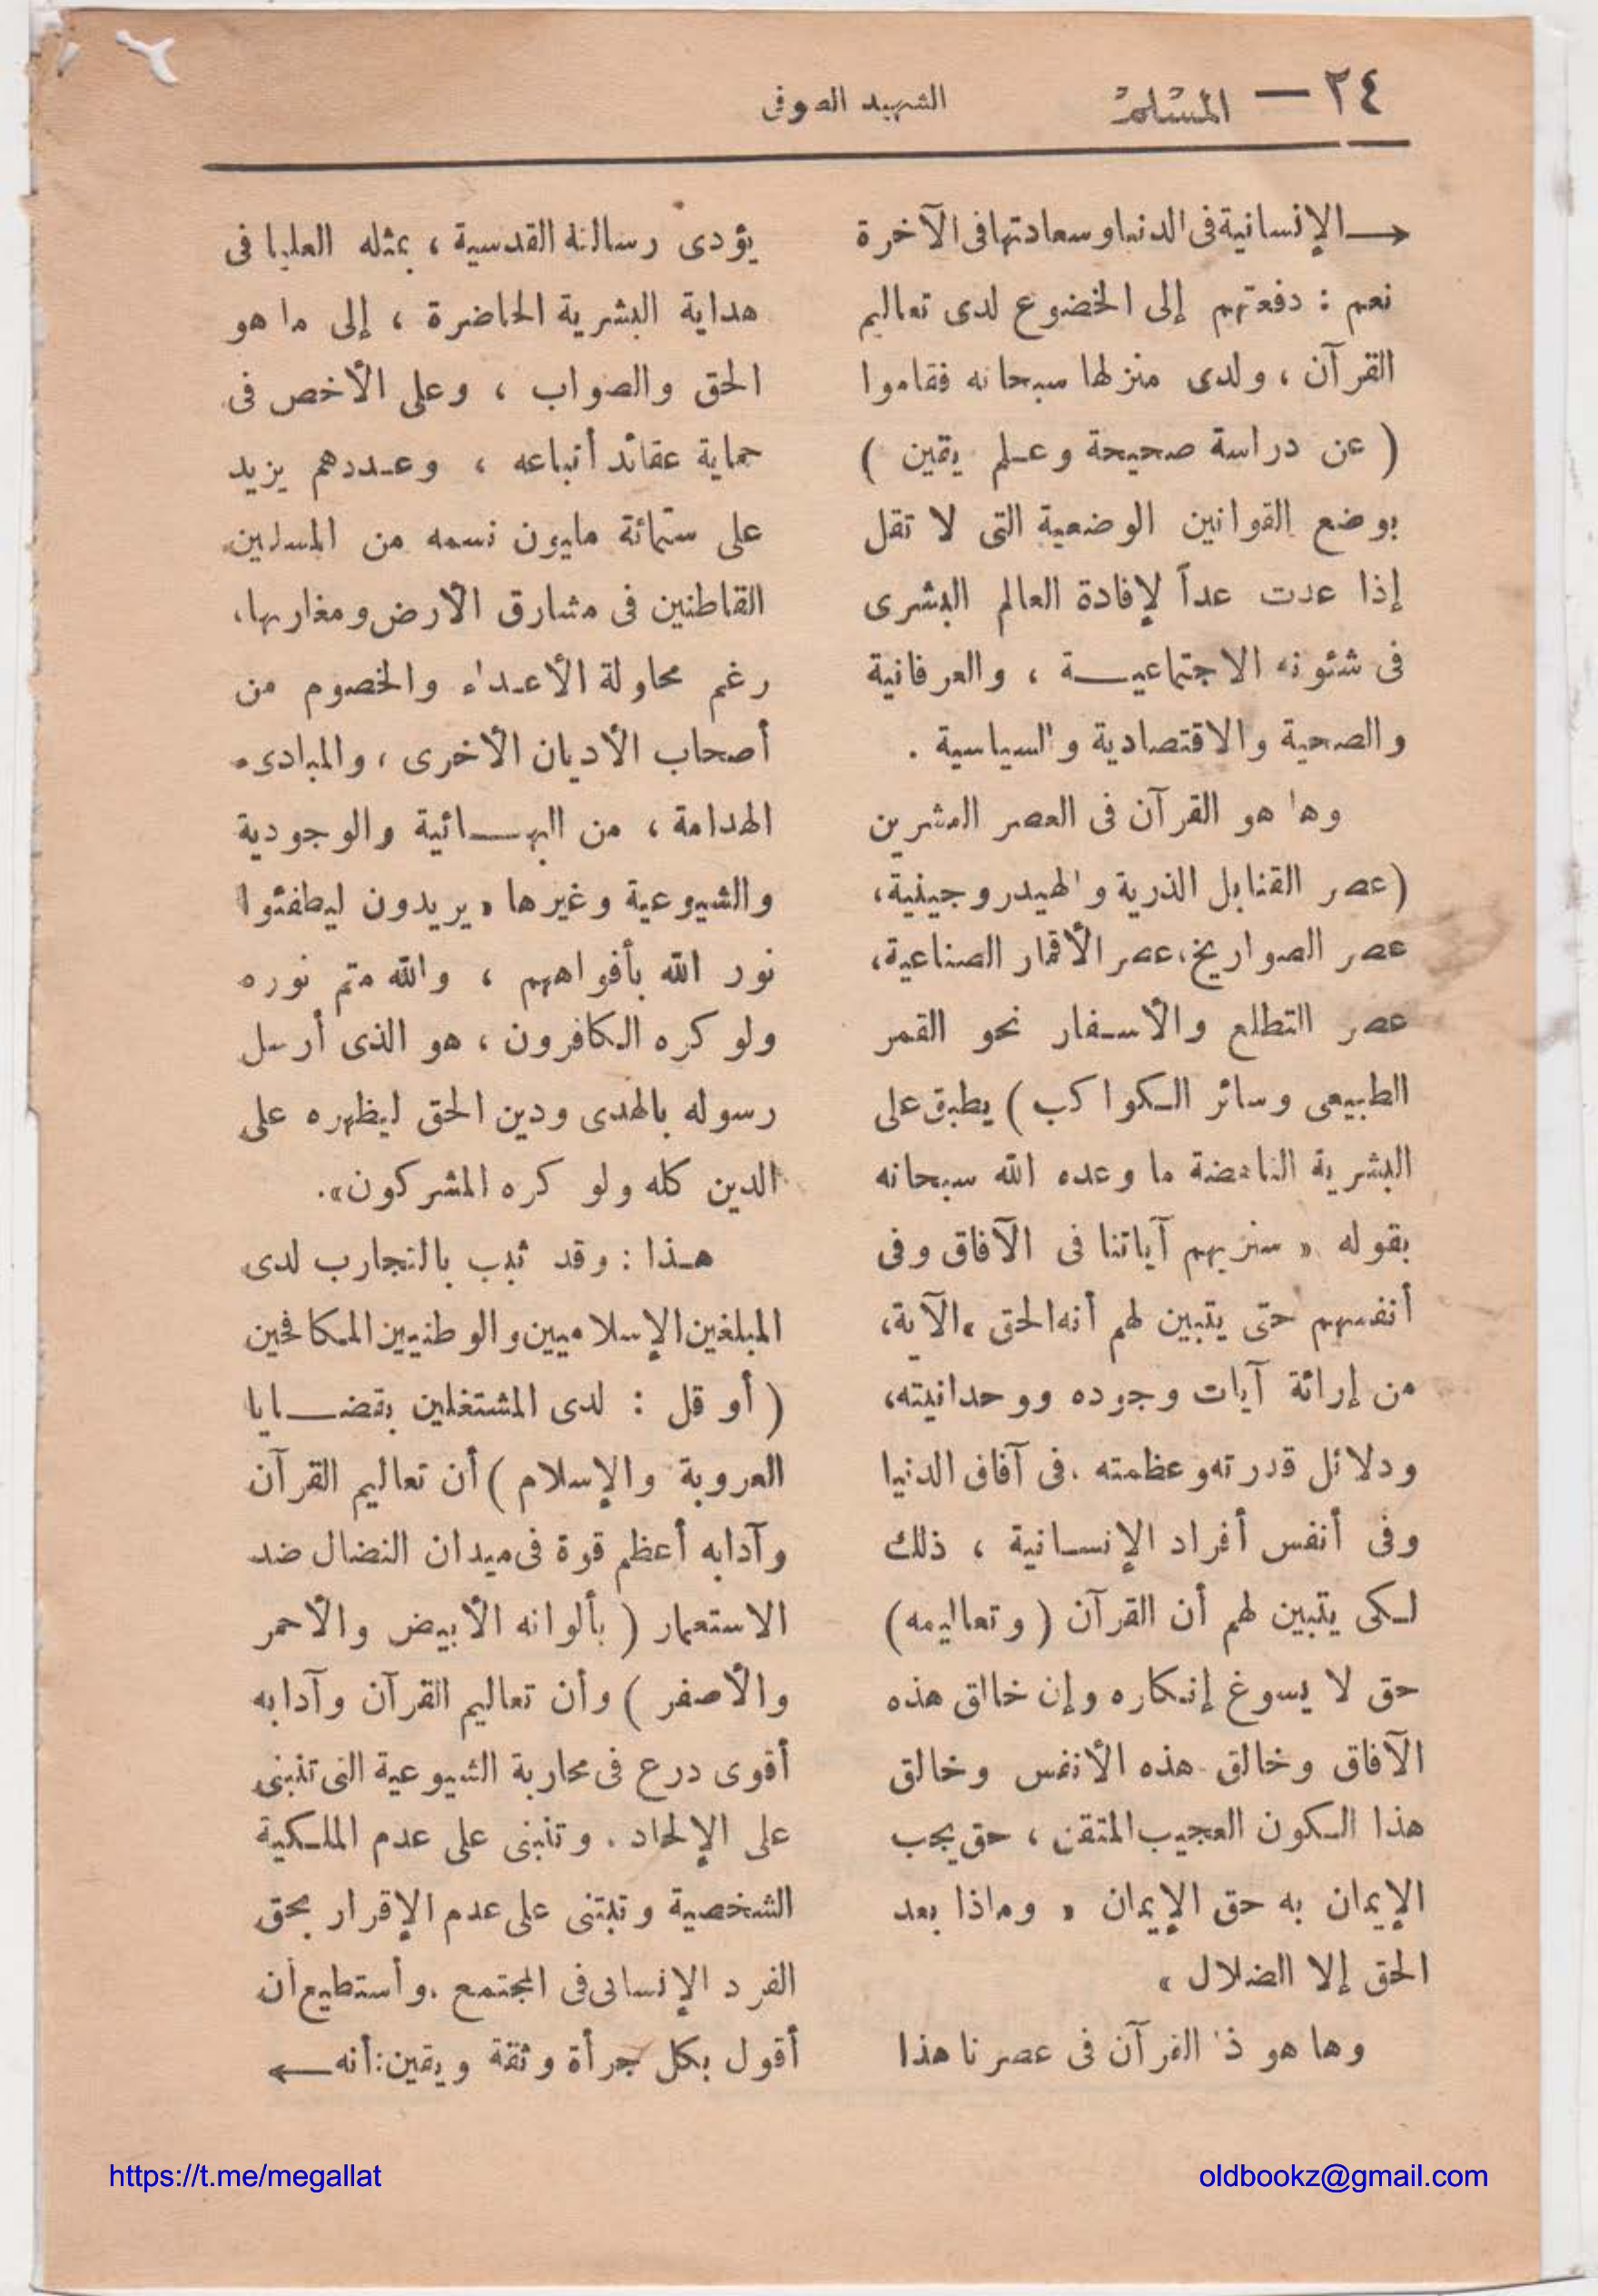 ٢٤ — المسلم
الشهيد الصوفى
الإنسانية فى الدنيا وسعادتها فى الآخرة
نعم : دفعتهم إلى الخضوع لدى تعاليم
القرآن ، ولدى منزلها سبحانه فقاموا
( عن دراسة صحيحة وعلم يقين )
بوضع القوانين الوضعية التى لا تقل
إذا عدت عداً لإفادة العالم البشرى
فى شئونه الاجتماعيـــة ، والعرفانية
والصحية والاقتصادية والسياسية .
وها هو القرآن فى العصر العشرين
(عصر القنابل الذرية والهيدروجينية،
عصر الصواريخ، عصر الأقمار الصناعية،
عصر التطلع والأسفار نحو القمر
الطبيعى وسائر الكواكب) يطبق على
البشرية الناهضة ما وعده الله سبحانه
بقوله « سنريهم آياتنا فى الآفاق وفى
أنفسهم حتى يتبين لهم أنه الحق » الآية،
من إرائة آيات وجوده ووحدانيته،
ودلائل قدرته وعظمته . فى آفاق الدنيا
وفى أنفس أفراد الإنسانية ، ذلك
لكى يتبين لهم أن القرآن ( وتعاليمه)
حق لا يسوغ إنكاره وإن خالق هذه
الآفاق وخالق هذه الأنفس وخالق
هذا الكون العجيب المتقن ، حق يجب
الإيمان به حق الإيمان « وماذا بعد
الحق إلا الضلال »
وها هو ذا القرآن فى عصرنا هذا
يؤدى رسالته القدسية ، بمثله العليا فى
هداية البشرية الحاضرة ، إلى ما هو
الحق والصواب ، وعلى الأخص فى
حماية عقائد أتباعه ، وعددهم يزيد
على ستمائة مليون نسمه من المسلمين
القاطنين فى مشارق الأرض ومغاربها،
رغم محاولة الأعداء والخصوم من
أصحاب الأديان الأخرى ، والمبادىء
الهدامة ، من البهـــائية والوجودية
والشيوعية وغيرها « يريدون ليطفئوا
نور الله بأفواههم ، والله متم نوره
ولو كره الكافرون ، هو الذى أرسل
رسوله بالهدى ودين الحق ليظهره على
الدين كله ولو كره المشركون».
هـذا : وقد ثبت بالتجارب لدى
المبلغين الإسلاميين والوطنيين المكافحين
( أو قل : لدى المشتغلين بقضـــايا
العروبة والإسلام ) أن تعاليم القرآن
وآدابه أعظم قوة فى ميدان النضال ضد
الاستعمار ( بألوانه الأبيض والأحمر
والأصفر ) وأن تعاليم القرآن وآدابه
أقوى درع فى محاربة الشيوعية التى تنبنى
على الإلحاد . وتنبنى على عدم الملكية
الشخصية وتبتنى على عدم الإقرار بحق
الفرد الإنسانى فى المجتمع . وأستطيع أن
أقول بكل جرأة وثقة ويقين : أنه
https://t.me/megallat
oldbookz@gmail.com